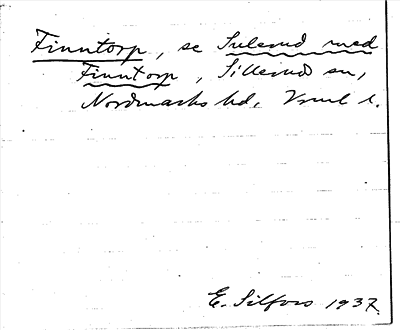 Finntorp, se Sulerud med
Finntorp, Sillerud sn,
Nordmarks hd, Vrml l.
E. Silfors 1937